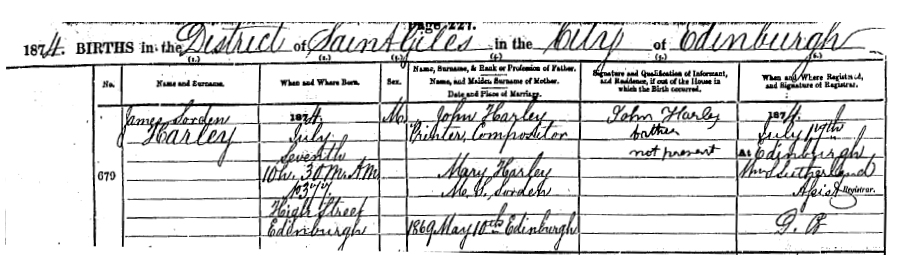 Page 227.
1874. BIRTHS in the District of Saint Giles in the City of Edinburgh
(1.) (2.) (3.) (4.) (5.) (6.)
No. Name and Surname. When and Where Born. Sex. Name, Surname, & Rank or Profession of Father. Name, and Maiden Surname of Mother. Date and Place of Marriage. Signature and Qualification of Informant, and Residence, if out of the House in which the Birth occurred. When and Where Registered, and Signature of Registrar.
679
James Sorden
Harley
1874,
July
Seventh
10 hr. 30 m. A.M.
High Street
Edinburgh
M.
John Harley
Printer, Compositor
Mary Harley
M.S. Sorden
1869 May 10th Edinburgh
John Harley
father
not present
1874,
July 17th
At Edinburgh
Wm Sutherland
Assist Registrar.